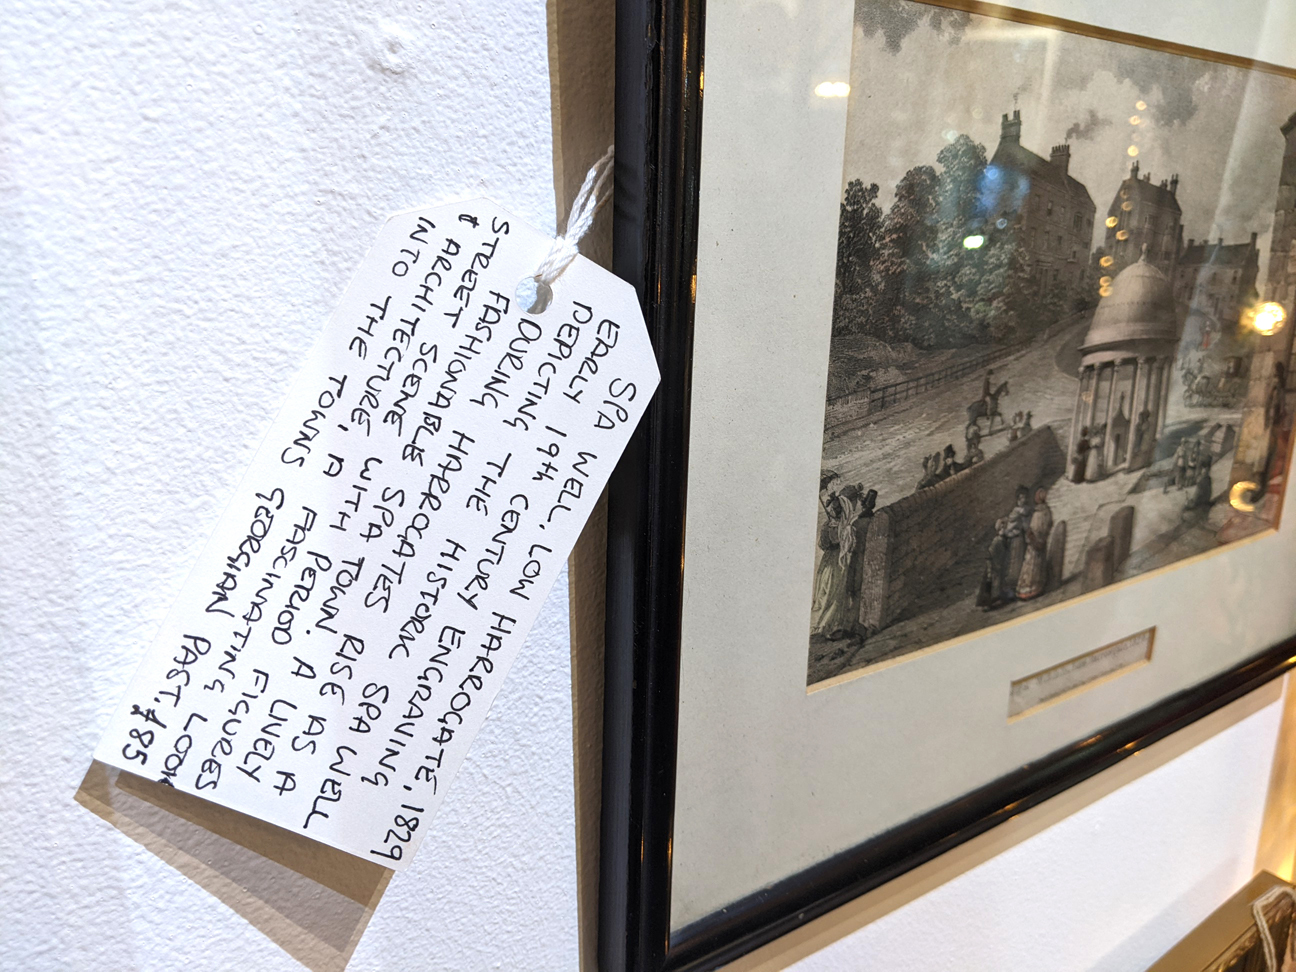 SPA WELL, LOW HARROGATE, 1829
EARLY 19th CENTURY ENGRAVING
DEPICTING THE HISTORIC SPA WELL
DURING HARROGATES RISE AS A
FASHIONABLE SPA TOWN. A LIVELY
STREET SCENE WITH PERIOD FIGURES
& ARCHITECTURE, A FASCINATING LOOK
INTO THE TOWNS GEORGIAN PAST. £85